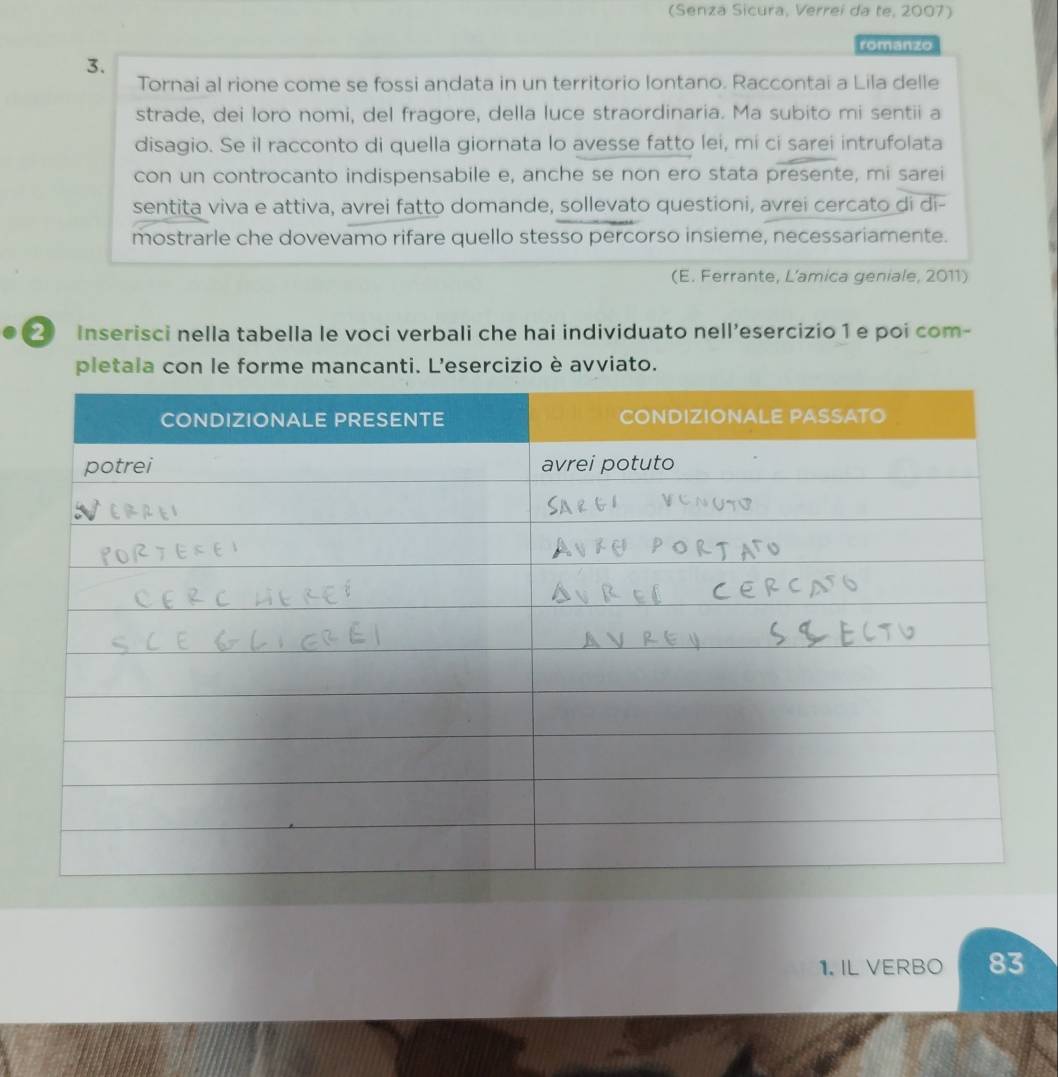 (Senza Sicura, Verrei da te, 2007)
romanzo
3.
Tornai al rione come se fossi andata in un territorio lontano. Raccontai a Lila delle
strade, dei loro nomi, del fragore, della luce straordinaria. Ma subito mi sentii a
disagio. Se il racconto di quella giornata lo avesse fatto lei, mi ci sarei intrufolata
con un controcanto indispensabile e, anche se non ero stata presente, mi sarei
sentita viva e attiva, avrei fatto domande, sollevato questioni, avrei cercato di di-
mostrarle che dovevamo rifare quello stesso percorso insieme, necessariamente.
(E. Ferrante, L'amica geniale, 2011)
2 Inserisci nella tabella le voci verbali che hai individuato nell'esercizio 1 e poi com-
pletala con le forme mancanti. L'esercizio è avviato.
CONDIZIONALE PRESENTE CONDIZIONALE PASSATO
potrei avrei potuto
VERREI SAREI VENUTO
PORTEREI AVREI PORTATO
CERCHEREI AVREI CERCATO
SCEGLIEREI AVREI
1. IL VERBO 83